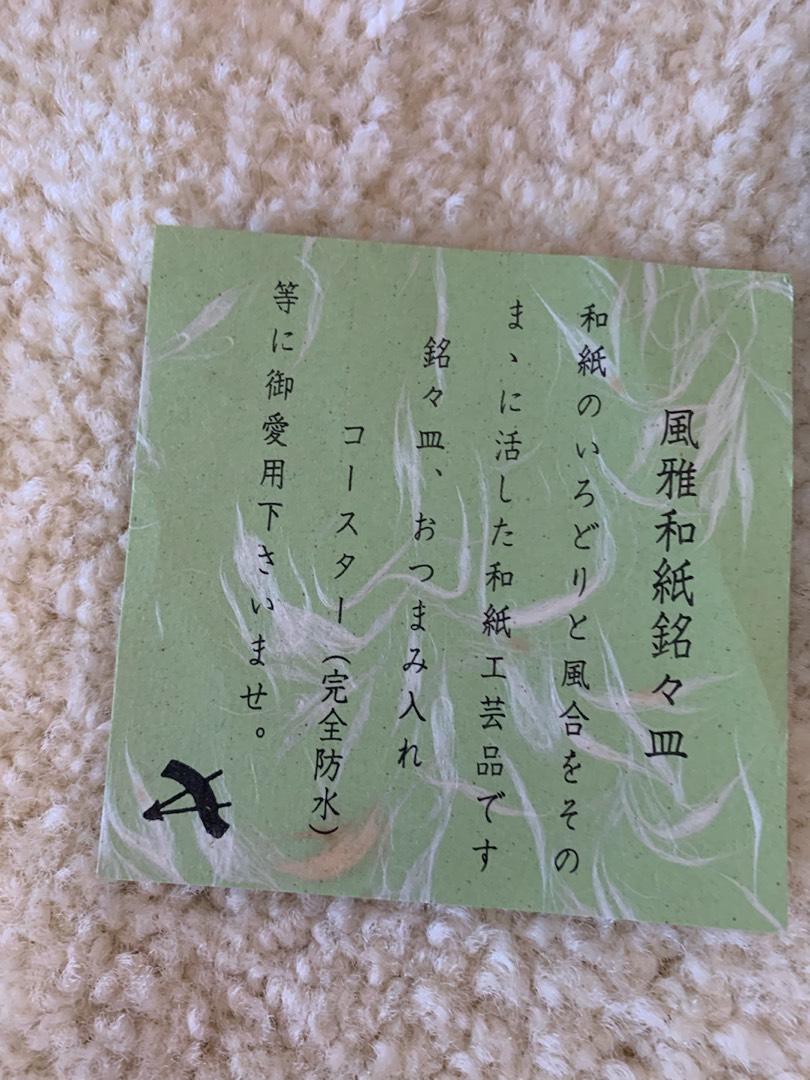 風雅和紙銘々皿
和紙のいろどりと風合をその
まゝに活した和紙工芸品です
銘々皿、おつまみ入れ
コースター(完全防水)
等に御愛用下さいませ。